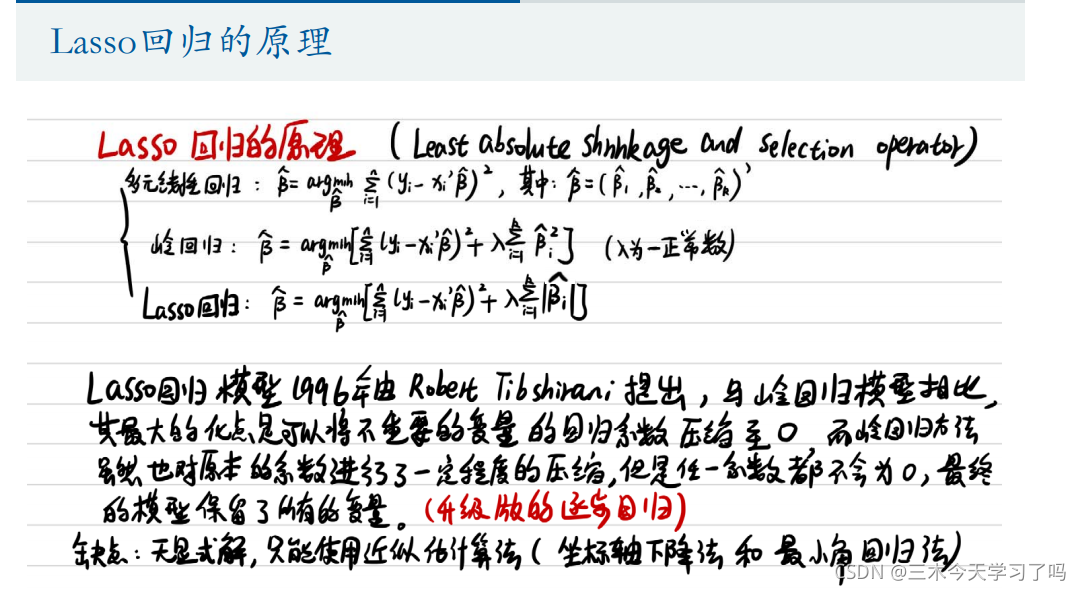 Lasso回归的原理
Lasso 回归的原理 (Least absolute shrinkage and selection operator)
多元线性回归: β̂ = argmin_β̂ Σ_{i=1}^{n} (yi - xi'β̂)², 其中: β̂=(β̂₁, β̂₂, ..., β̂ₖ)'
岭回归: β̂ = argmin_β̂ [Σ_{i=1}^{n} (yi - xi'β̂)² + λ Σ_{i=1}^{k} β̂i²] (λ为一正常数)
Lasso回归: β̂ = argmin_β̂ [Σ_{i=1}^{n} (yi - xi'β̂)² + λ Σ_{i=1}^{k} |β̂i|]
Lasso回归模型1996年由Robert Tibshirani提出,与岭回归模型相比,
其最大的优点是可以将不重要的变量的回归系数压缩至0,而岭回归方法
虽然也对原本的系数进行了一定程度的压缩,但是任一系数都不会为0,最终
的模型保留了所有的变量。(升级版的逐步回归)
缺点:无显式解,只能使用近似估计算法(坐标轴下降法和最小角回归法)
CSDN @三木今天学习了吗